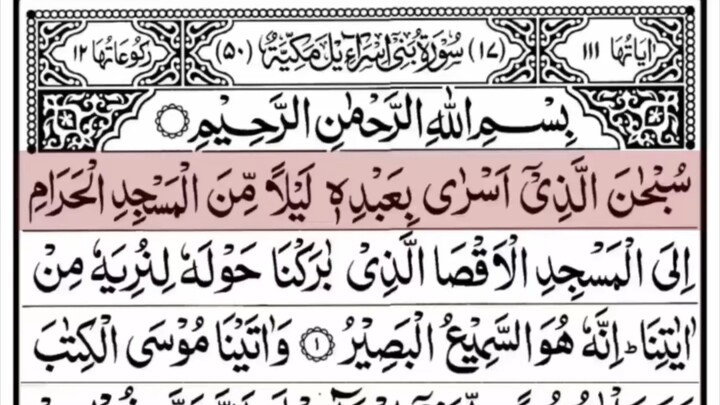 اٰيَاتُهَا ١١١ (١٧) سُوْرَةُ بَنِىْٓ اِسْرَآءِيْلَ مَكِّيَّةٌ (٥٠) رُكُوْعَاتُهَا ١٢
بِسْمِ اللّٰهِ الرَّحْمٰنِ الرَّحِيْمِ
سُبْحٰنَ الَّذِىْٓ اَسْرٰى بِعَبْدِهٖ لَيْلًا مِّنَ الْمَسْجِدِ الْحَرَامِ
اِلَى الْمَسْجِدِ الْاَقْصَا الَّذِىْ بٰرَكْنَا حَوْلَهٗ لِنُرِيَهٗ مِنْ
اٰيٰتِنَا ؕ اِنَّهٗ هُوَ السَّمِيْعُ الْبَصِيْرُ ﴿١﴾ وَاٰتَيْنَا مُوْسَى الْكِتٰبَ